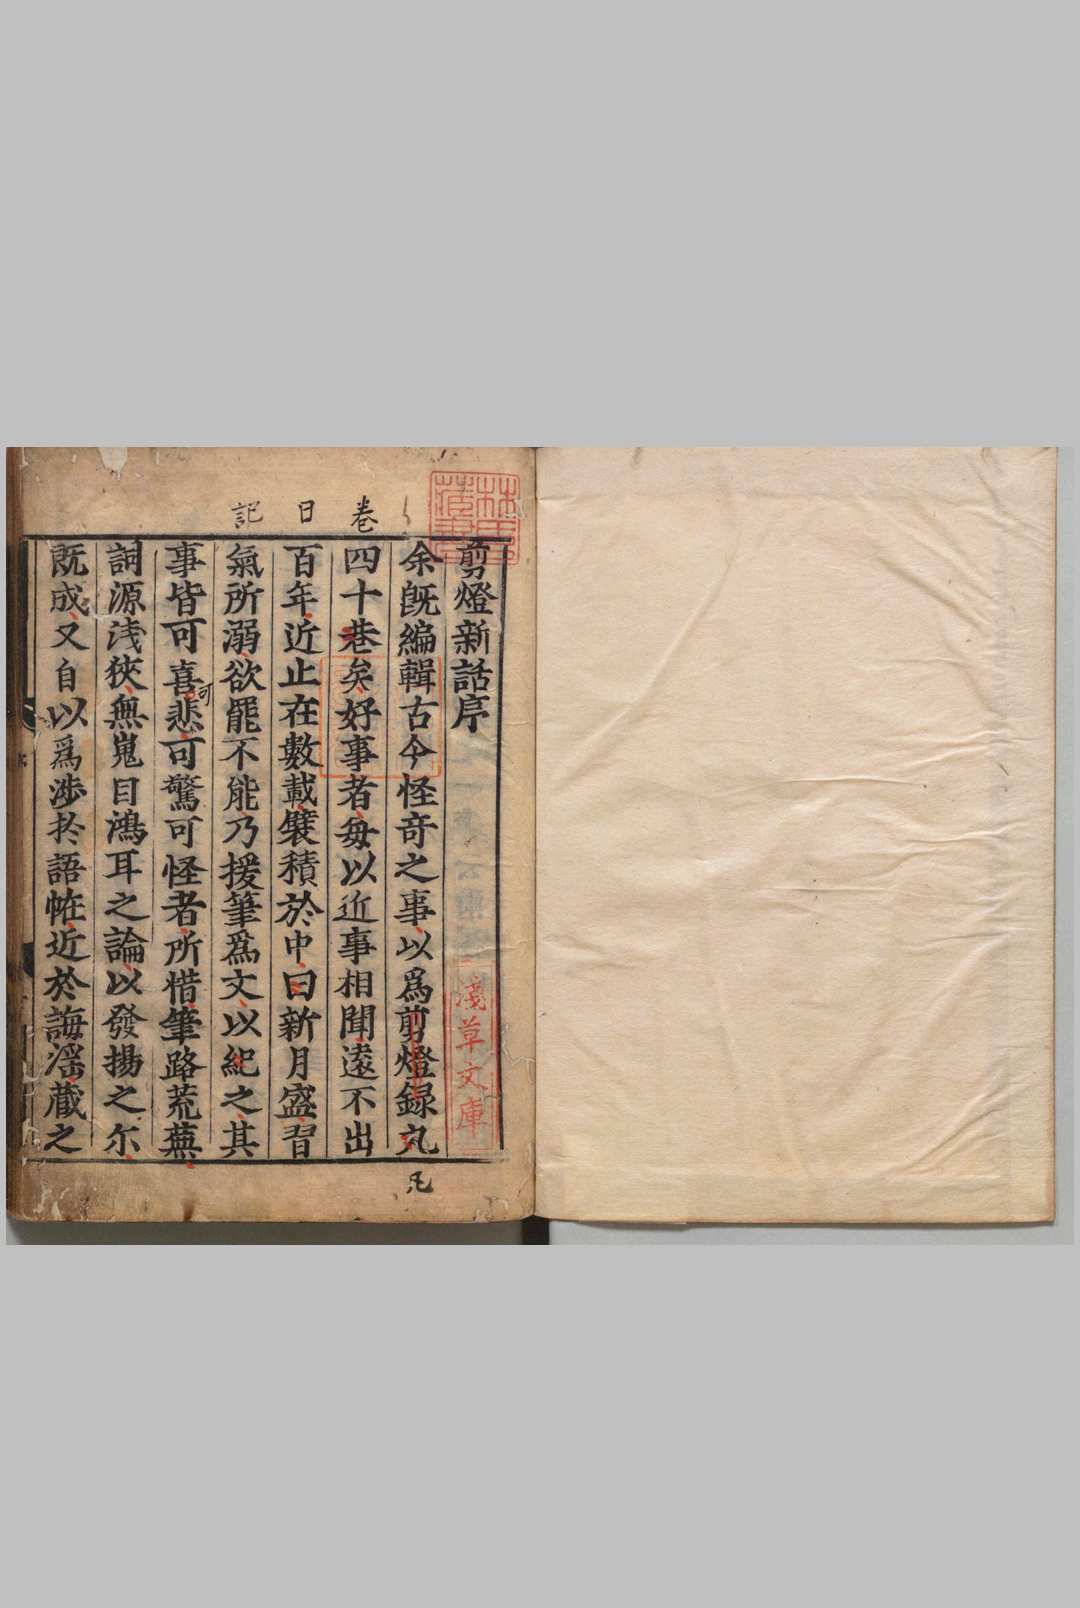 剪燈新話序
余旣編輯古今怪奇之事以爲剪燈録凡
四十巷矣好事者毎以近事相聞遠不出
百年近止在數載襞積於中日新月盛習
氣所溺欲罷不能乃援筆爲文以紀之其
事皆可喜可悲可驚可怪者所惜筆路荒蕪
詞源淺狹無嵬目鴻耳之論以發揚之尓
既成又自以爲渉於語恠近於誨淫藏之
卷
日
記
凡
林氏
藏書
淺草文庫